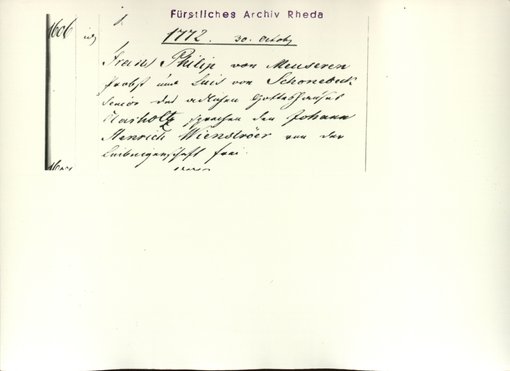 Fürstliches Archiv Rheda
1606
1772. 30. Octob.
Franz Philip von Meuseren
Probst und Luis von Schonebeck
Senior des adlichen Gotteshauses
Clarholtz sprechen den Johann
Henrich Wienströer von der
Leibeigenschaft frei.